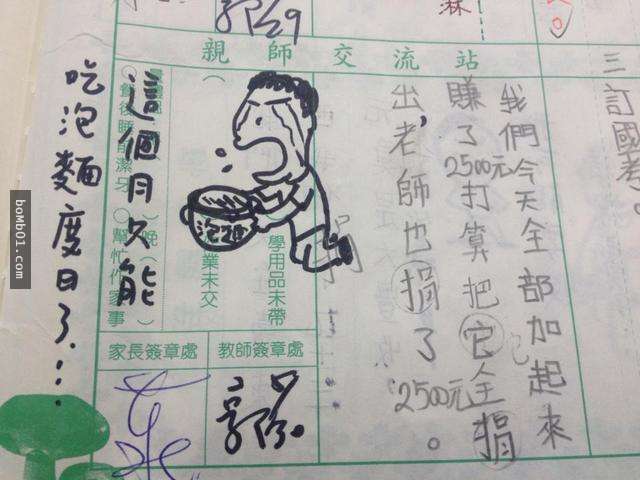 親師交流站
三訂國考。
我們今天全部加起來
賺了2500元打算把它全捐
出,老師也捐了2500元。
學用品未帶
業未交
泡麵
這個月只能
吃泡麵度日了...
晚
飯後睡前潔牙
幫忙作家事
家長簽章處
教師簽章處
29
森
bomb01.com